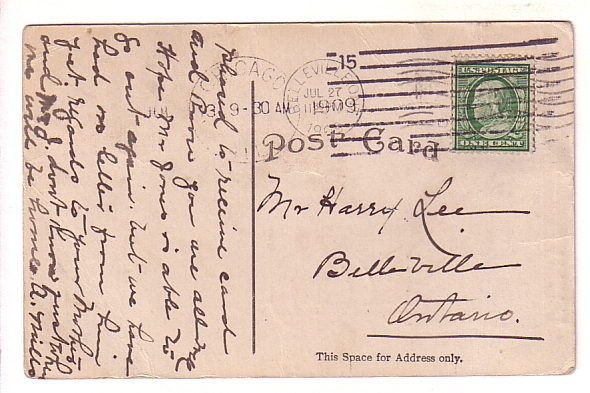 CHICAGO
9-30 AM 1909
-15
BELLEVILLE
JUL 27
U.S. POSTAGE
ONE CENT
Post Card
Mr Harry Lee
Belleville
Ontario.
This Space for Address only.
pleased to receive card
and know you are all well
Hope Mr Jones is able to
Go out again. but we have
had no letter from him
Just regards to your Mother
and Mr J. dont know just when
we will be home. A. Mills